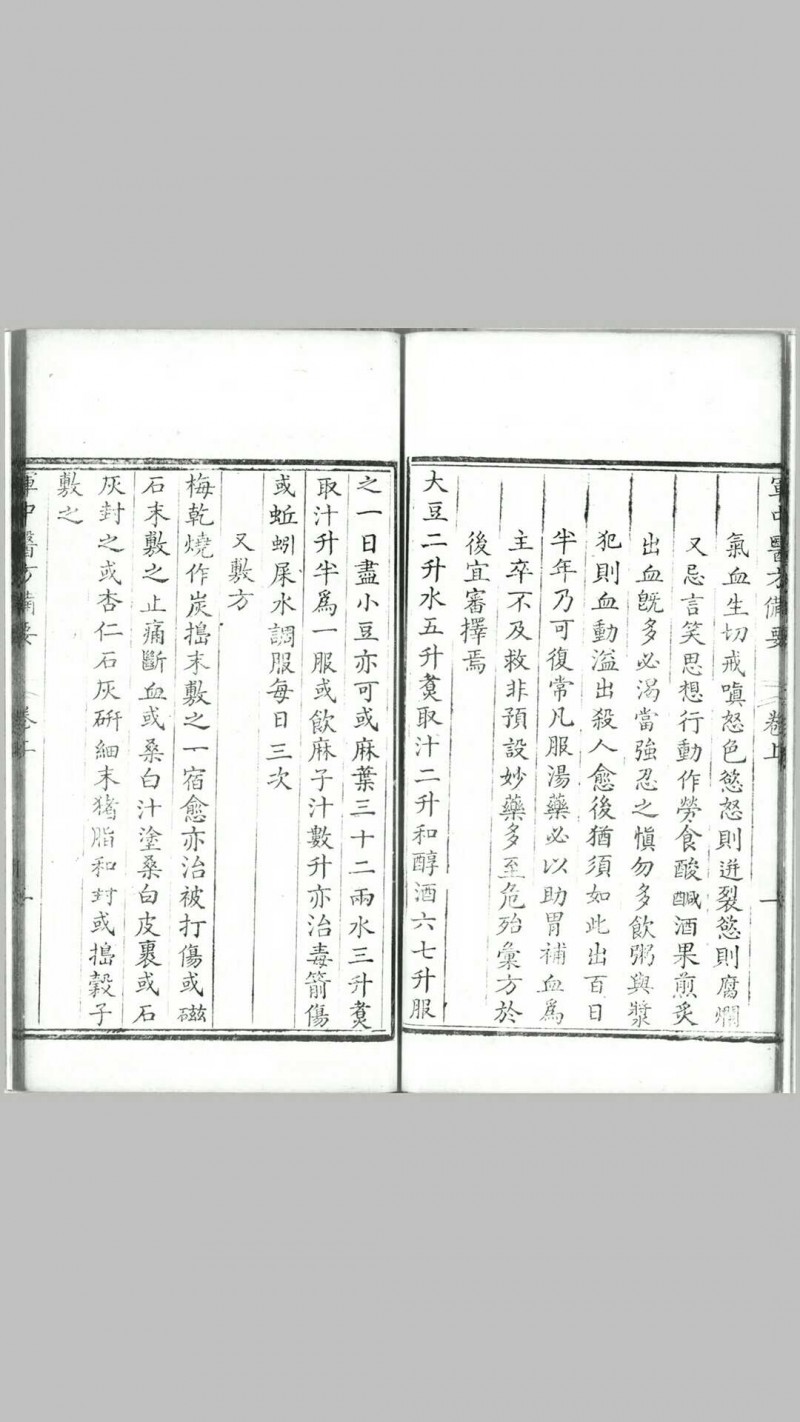 軍中醫方備要 卷上 一
氣血生切戒嗔怒色慾怒則迸裂慾則腐爛
又忌言笑思想行動作勞食酸鹹酒果煎炙
出血旣多必渴當強忍之愼勿多飮粥與漿
犯則血動溢出殺人愈後猶須如此出百日
半年乃可復常凡服湯藥必以助胃補血爲
主卒不及救非預設妙藥多至危殆彙方於
後宜審擇焉
大豆二升水五升煑取汁二升和醇酒六七升服
之一日盡小豆亦可或麻葉三十二兩水三升煑
取汁升半爲一服或飮麻子汁數升亦治毒箭傷
或蚯蚓屎水調服每日三次
又敷方
梅乾燒作炭搗末敷之一宿愈亦治被打傷或磁
石末敷之止痛斷血或桑白汁塗桑白皮裹或石
灰封之或杏仁石灰硏細末猪脂和封或搗穀子
敷之
軍中醫方備要 卷上